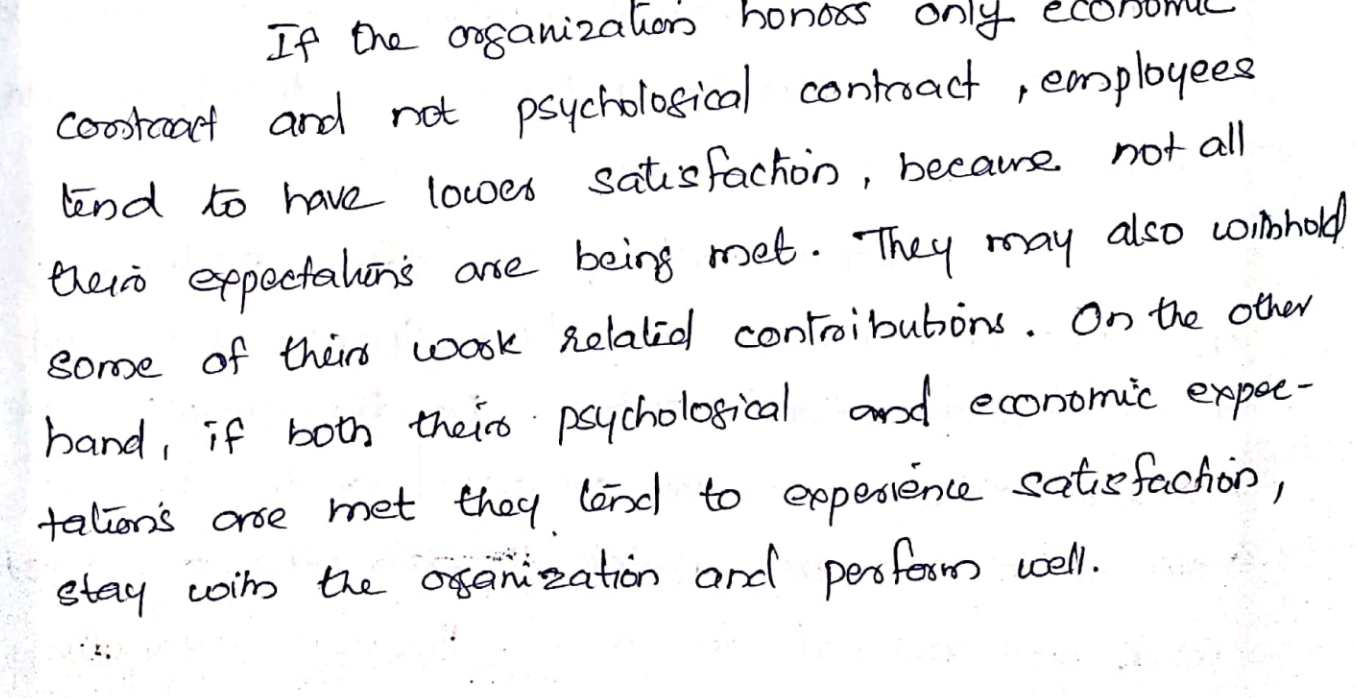 If the organization honors only economic
contract and not psychological contract, employees
tend to have lower satisfaction, because not all
their expectations are being met. They may also withhold
some of their work related contributions. On the other
hand, if both their psychological and economic expec-
tations are met they tend to experience satisfaction,
stay with the organization and perform well.